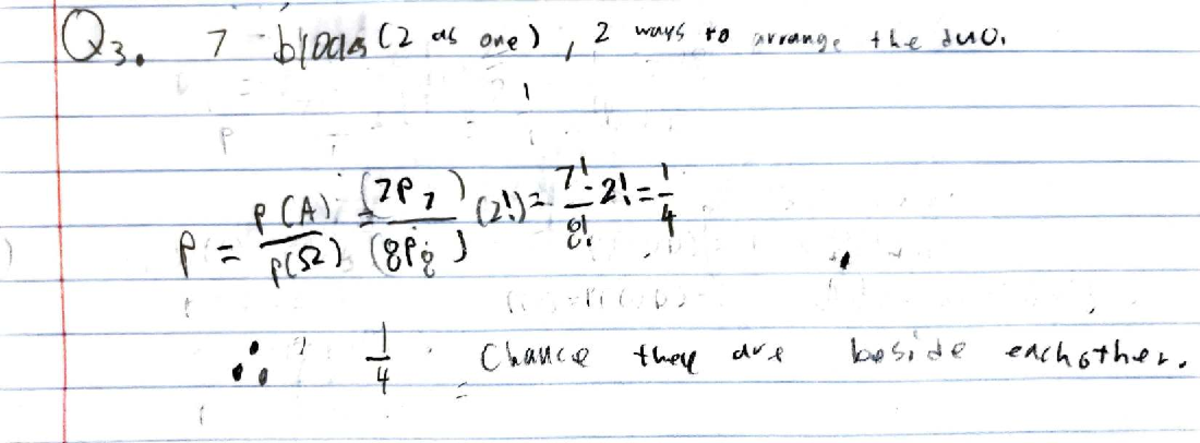 Q3. 7 blocks (2 as one), 2 ways to arrange the duo.
P = P(A)/P(Ω) = (7P7)/(8P8) (2!) = 7!·2!/8! = 1/4
∴ 1/4 Chance they are beside eachother.